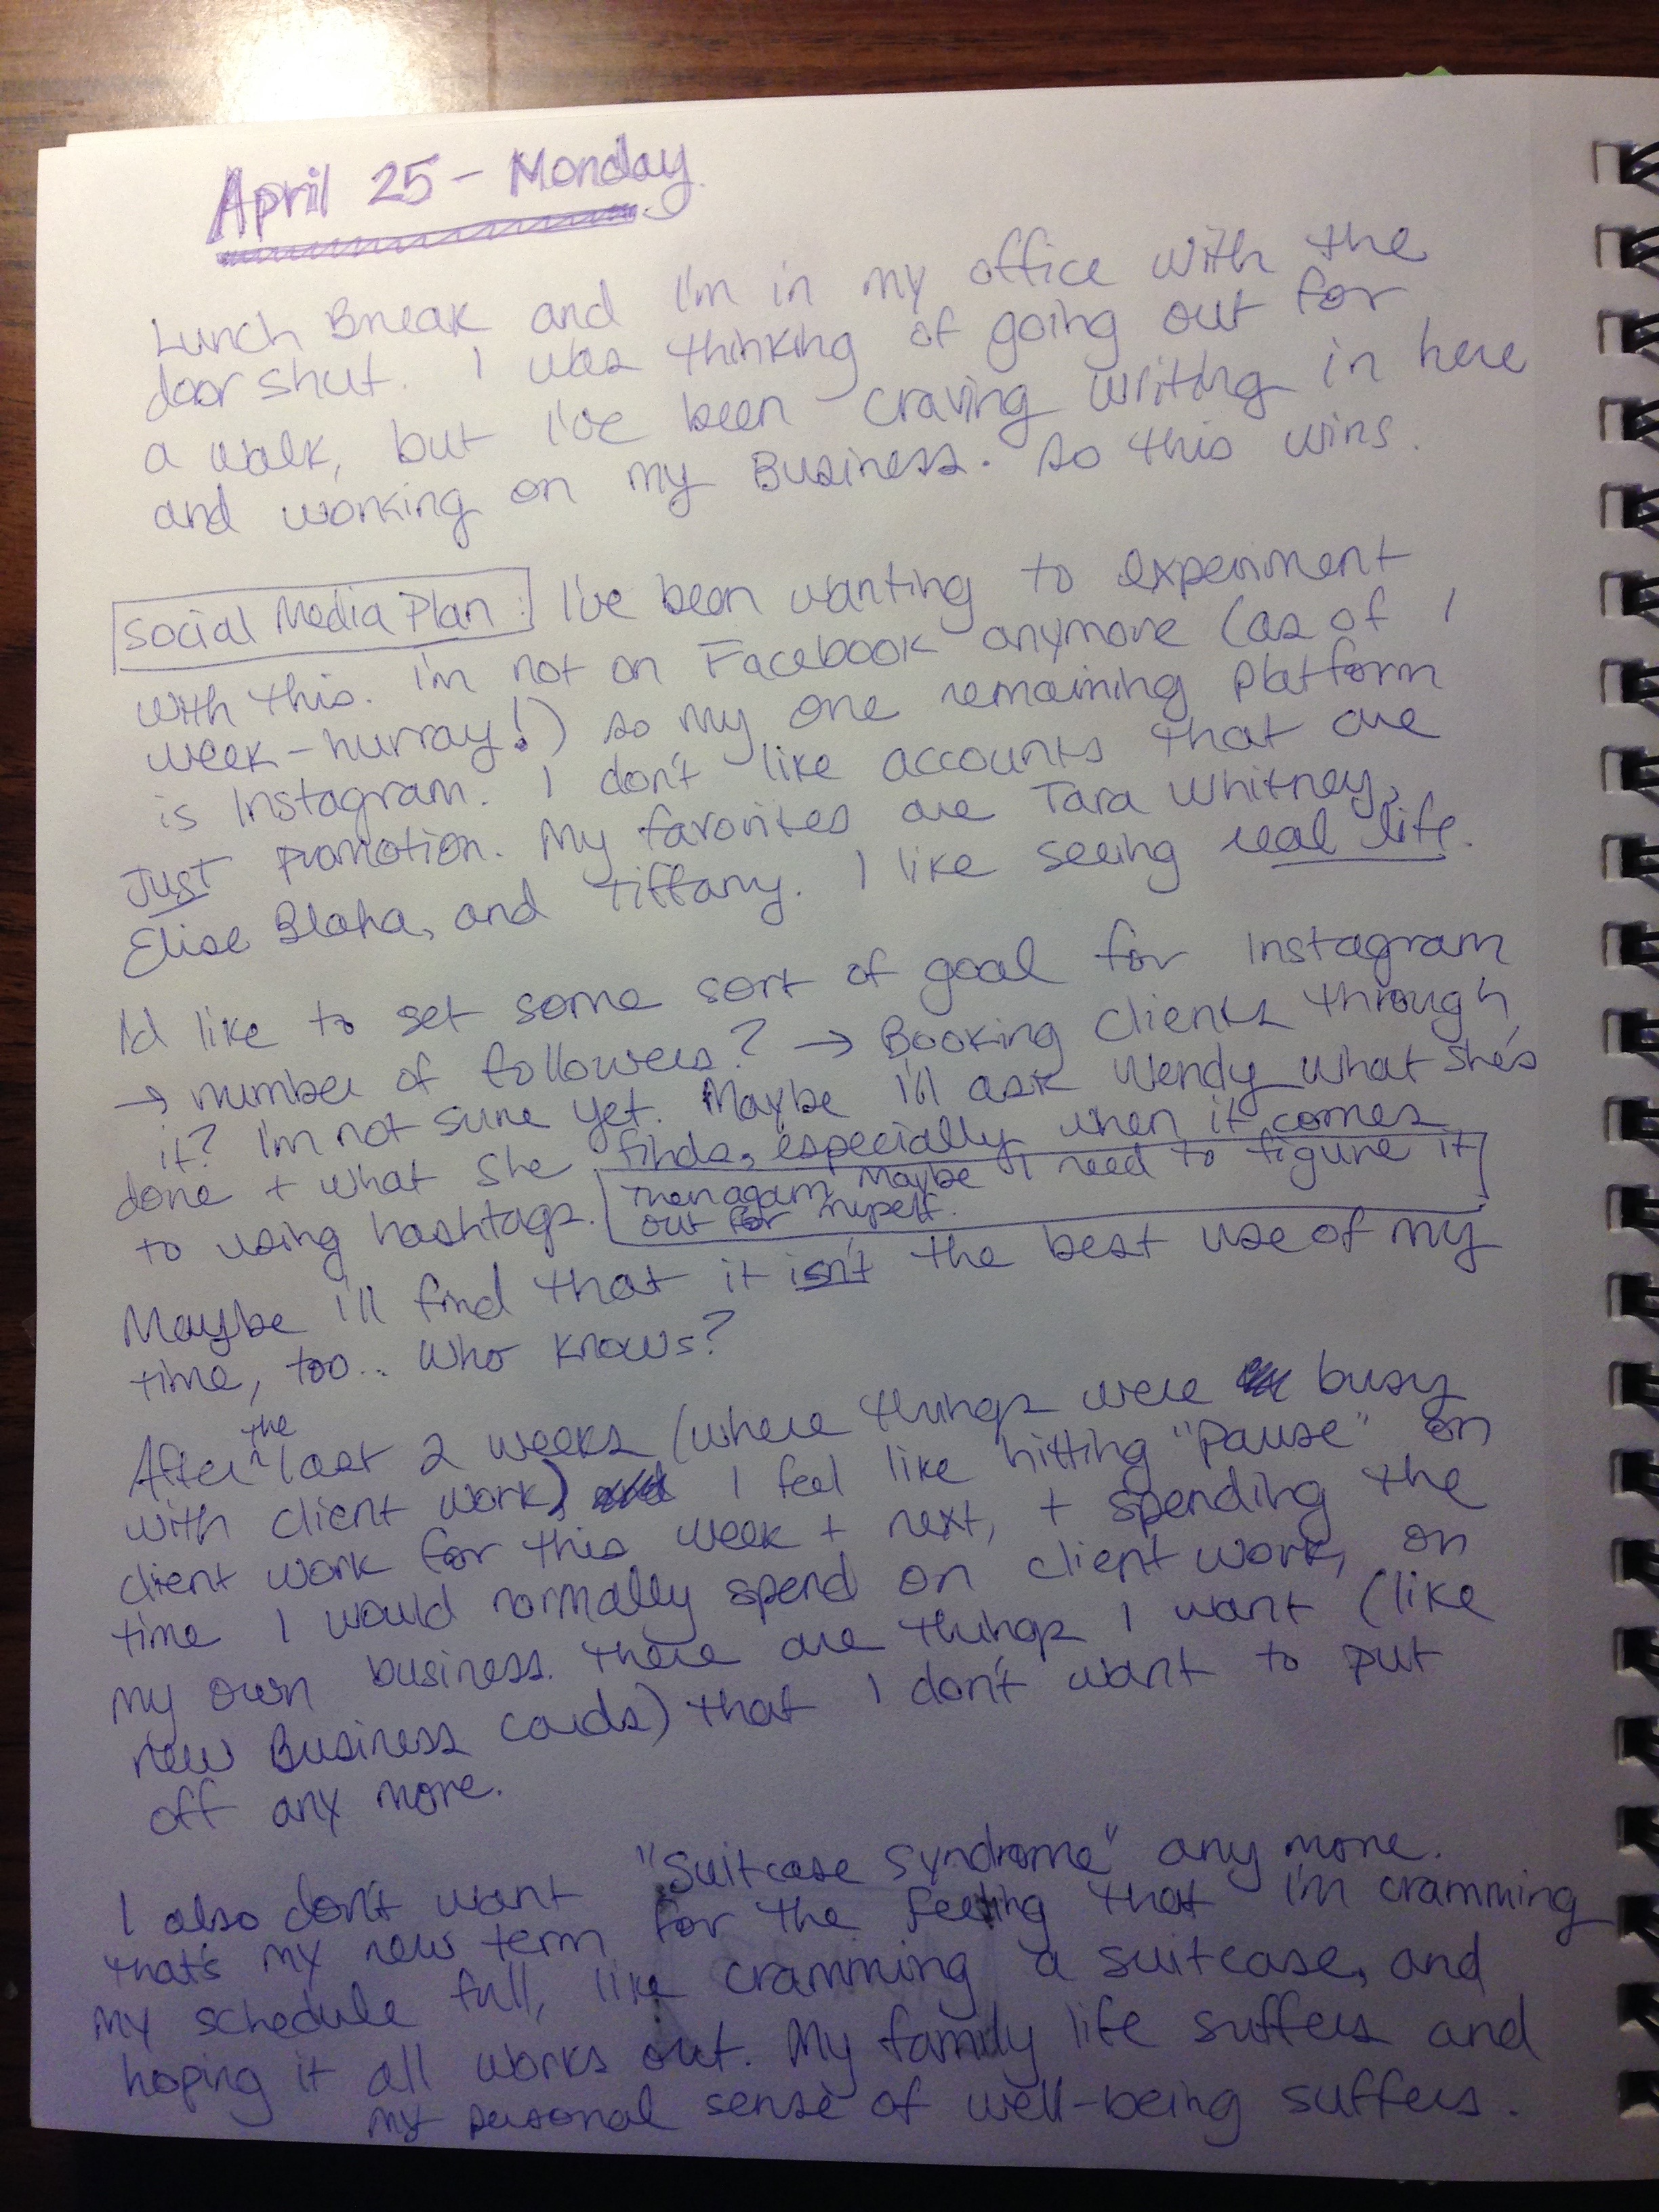 April 25 - Monday.
Lunch Break and I'm in my office with the
door shut. I was thinking of going out for
a walk, but I've been craving writing in here
and working on my Business. So this wins.
Social Media Plan: I've been wanting to experiment
with this. I'm not on Facebook anymore (as of 1
week - hurray!) so my one remaining platform
is Instagram. I don't like accounts that are
JUST promotion. My favorites are Tara Whitney,
Elise Blaha, and Tiffany. I like seeing real life.
I'd like to set some sort of goal for Instagram
→ number of followers? → Booking clients through
it? I'm not sure yet. Maybe I'll ask Wendy what she's
done + what she finds, especially when it comes
to using hashtags. Then again, Maybe I need to figure it
out for myself.
Maybe I'll find that it isn't the best use of my
time, too.. Who knows?
After the last 2 weeks (where things were busy
with client work) I feel like hitting "Pause" on
client work for this week + next, + spending the
time I would normally spend on client work, on
my own business. There are things I want (like
new Business cards) that I don't want to put
off any more.
I also don't want "Suitcase Syndrome" any more.
That's my new term for the feeling that I'm cramming
my schedule full, like cramming a suitcase, and
hoping it all works out. My family life suffers and
my personal sense of well-being suffers.